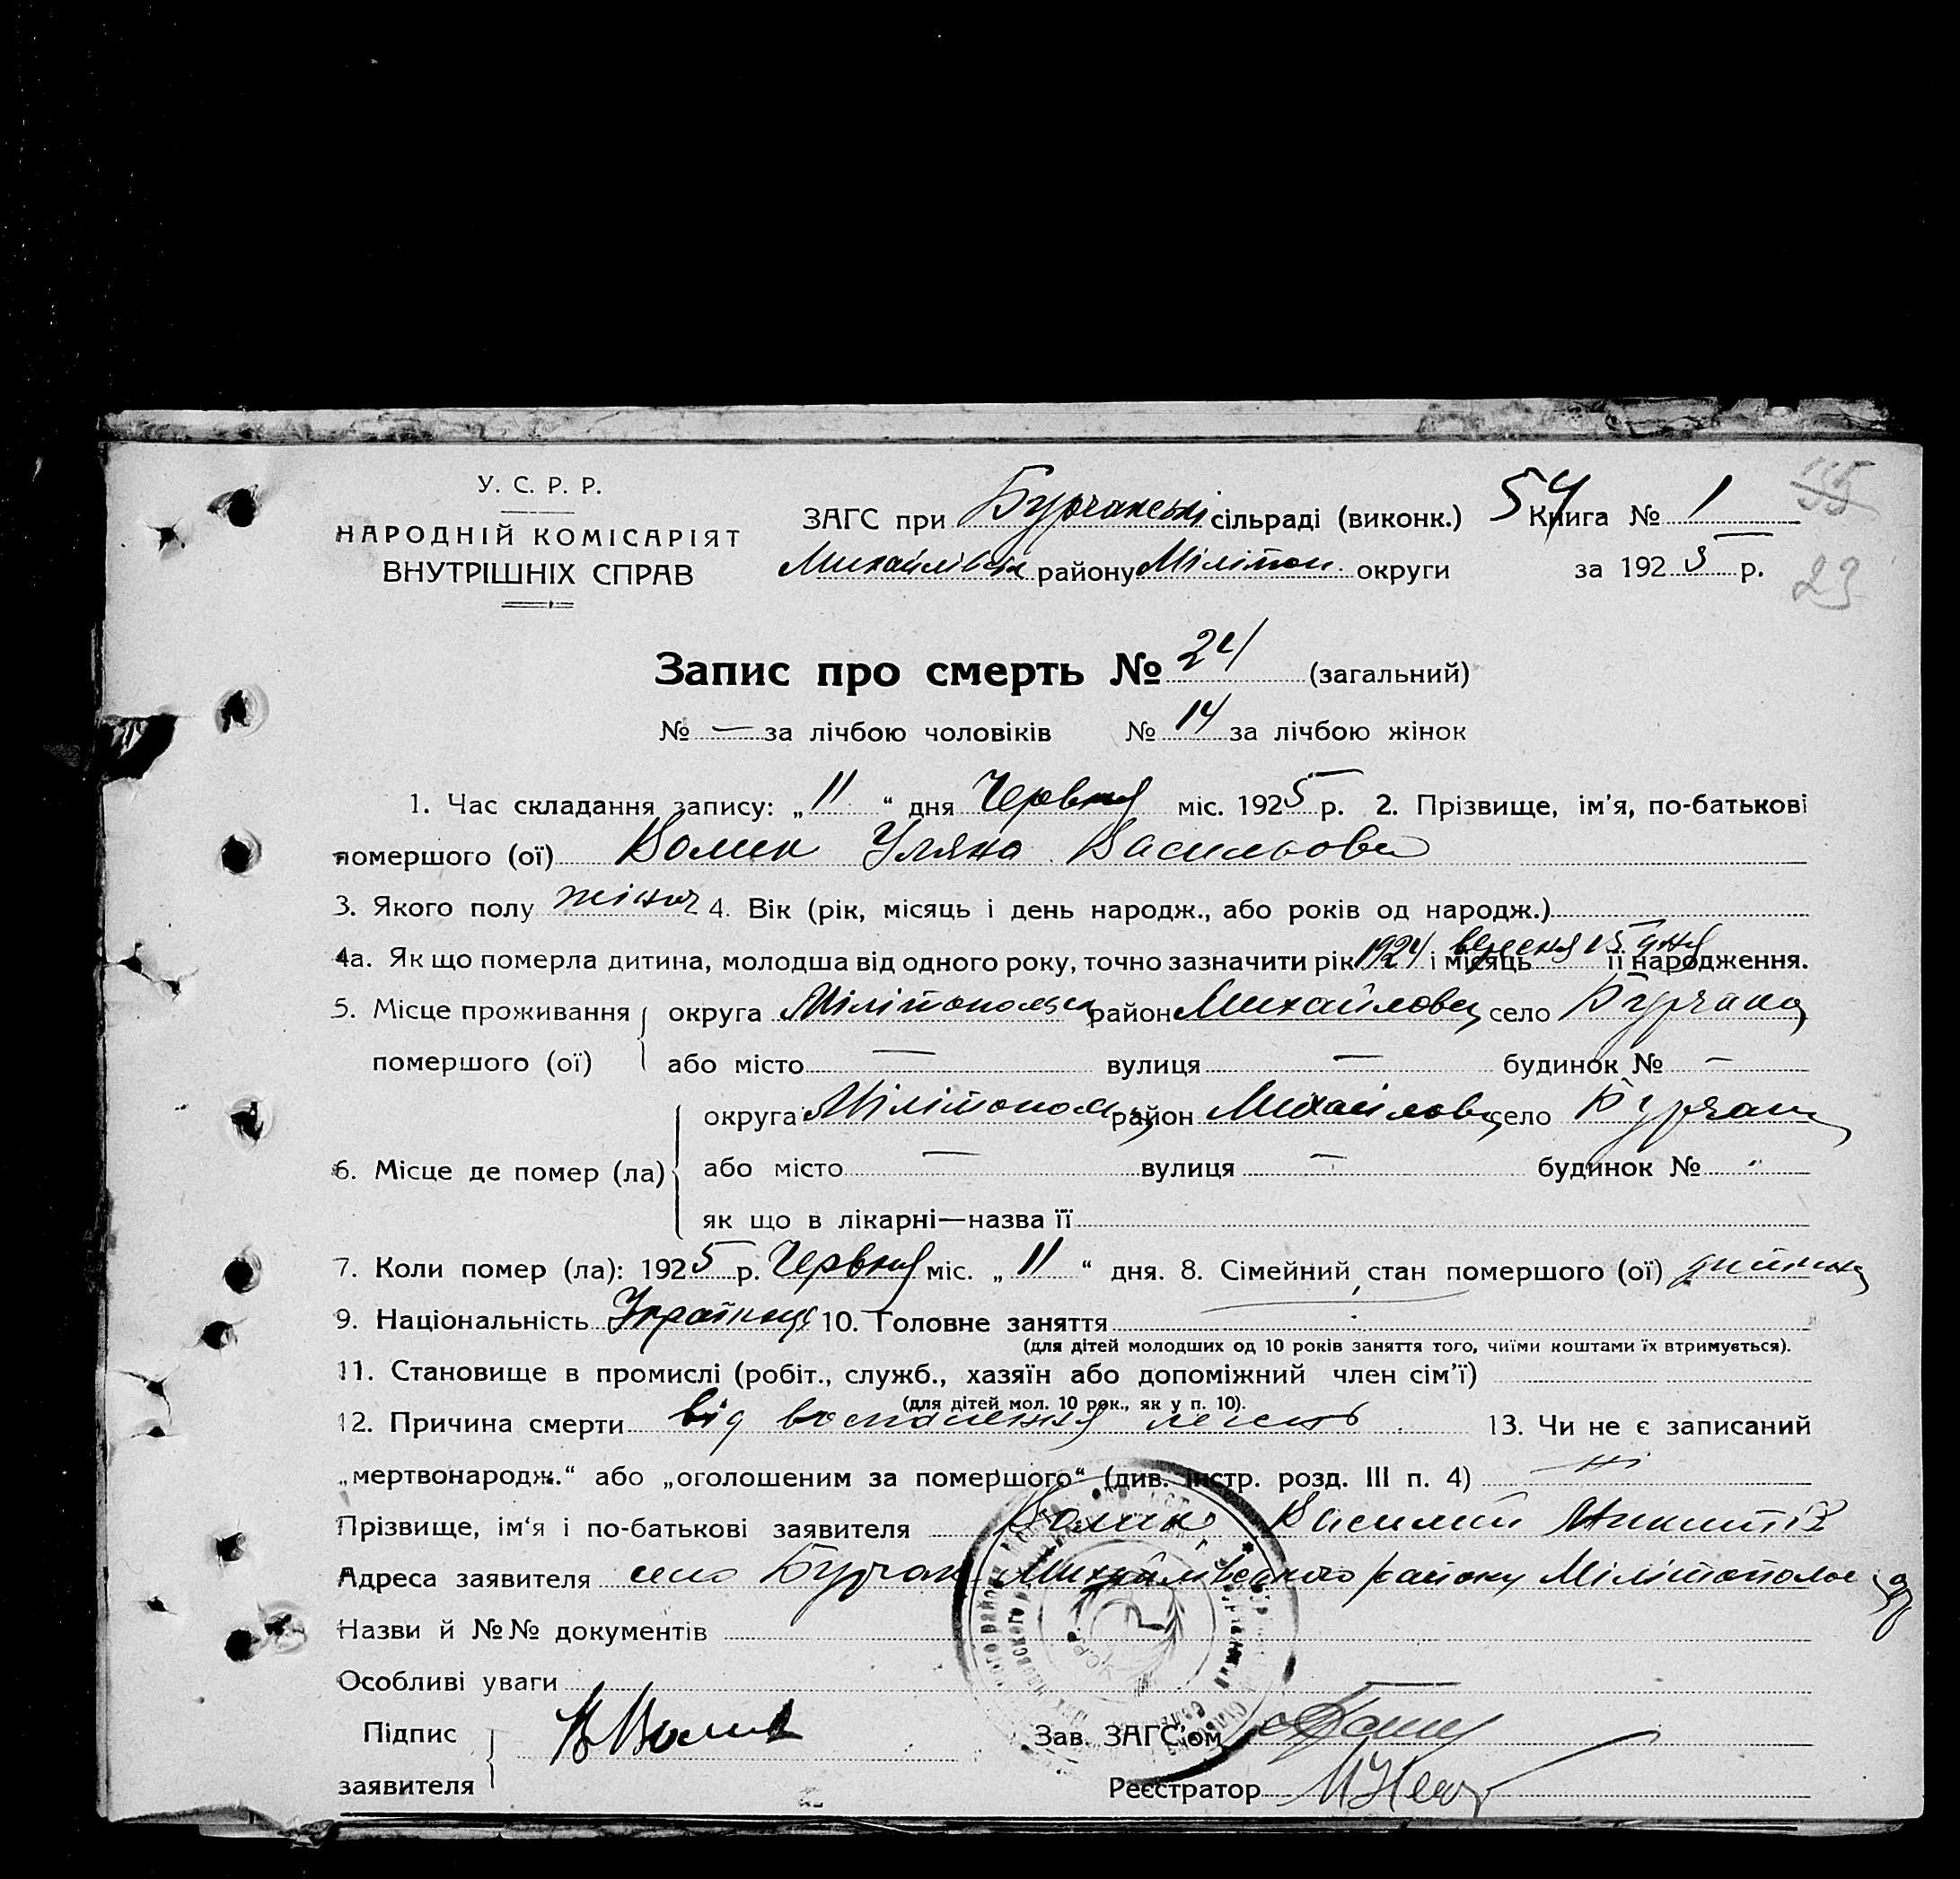 У. С. Р. Р.
НАРОДНІЙ КОМІСАРІЯТ
ВНУТРІШНІХ СПРАВ
ЗАГС при Бурчанські сільраді (виконк.) 54 Книга № 1 55
Михайлівськ району Міліпоп. округи за 1925 р. 23
Запис про смерть № 24 (загальний)
№ — за лічбою чоловіків № 14 за лічбою жінок
1. Час складання запису: „11“ дня Червня міс. 1925 р. 2. Прізвище, ім'я, по-батькові
помершого (ої) Волик Уляна Васильова
3. Якого полу жіноч 4. Вік (рік, місяць і день народж., або років од народж.)
4а. Як що померла дитина, молодша від одного року, точно зазначити рік 1924 і місяць вересня 15 дня її народження.
5. Місце проживання округа Мілітопольск район Михайловск село Бурчак
помершого (ої) або місто — вулиця — будинок № —
округа Мілітопол район Михайловск село Бурчак
6. Місце де помер (ла) або місто — вулиця — будинок №
як що в лікарні—назва її
7. Коли помер (ла): 1925 р. Червня міс. „11“ дня. 8. Сімейний стан помершого (ої) дитина
9. Національність Українка 10. Головне заняття
(для дітей молодших од 10 років заняття того, чиїми коштами їх втримується).
11. Становище в промислі (робіт., служб., хазяїн або допоміжний член сім'ї)
(для дітей мол. 10 рок., як у п. 10).
12. Причина смерти від воспаления легень 13. Чи не є записаний
„мертвонародж.“ або „оголошеним за помершого“ (див. інстр. розд. III п. 4) ні
Прізвище, ім'я і по-батькові заявителя Волик Василий Микитів
Адреса заявителя село Бурчак Михайлівського району Мілітопольс
Назви й №№ документів
Особливі уваги
Підпис В Волик Зав. ЗАГС'ом
заявителя Реєстратор